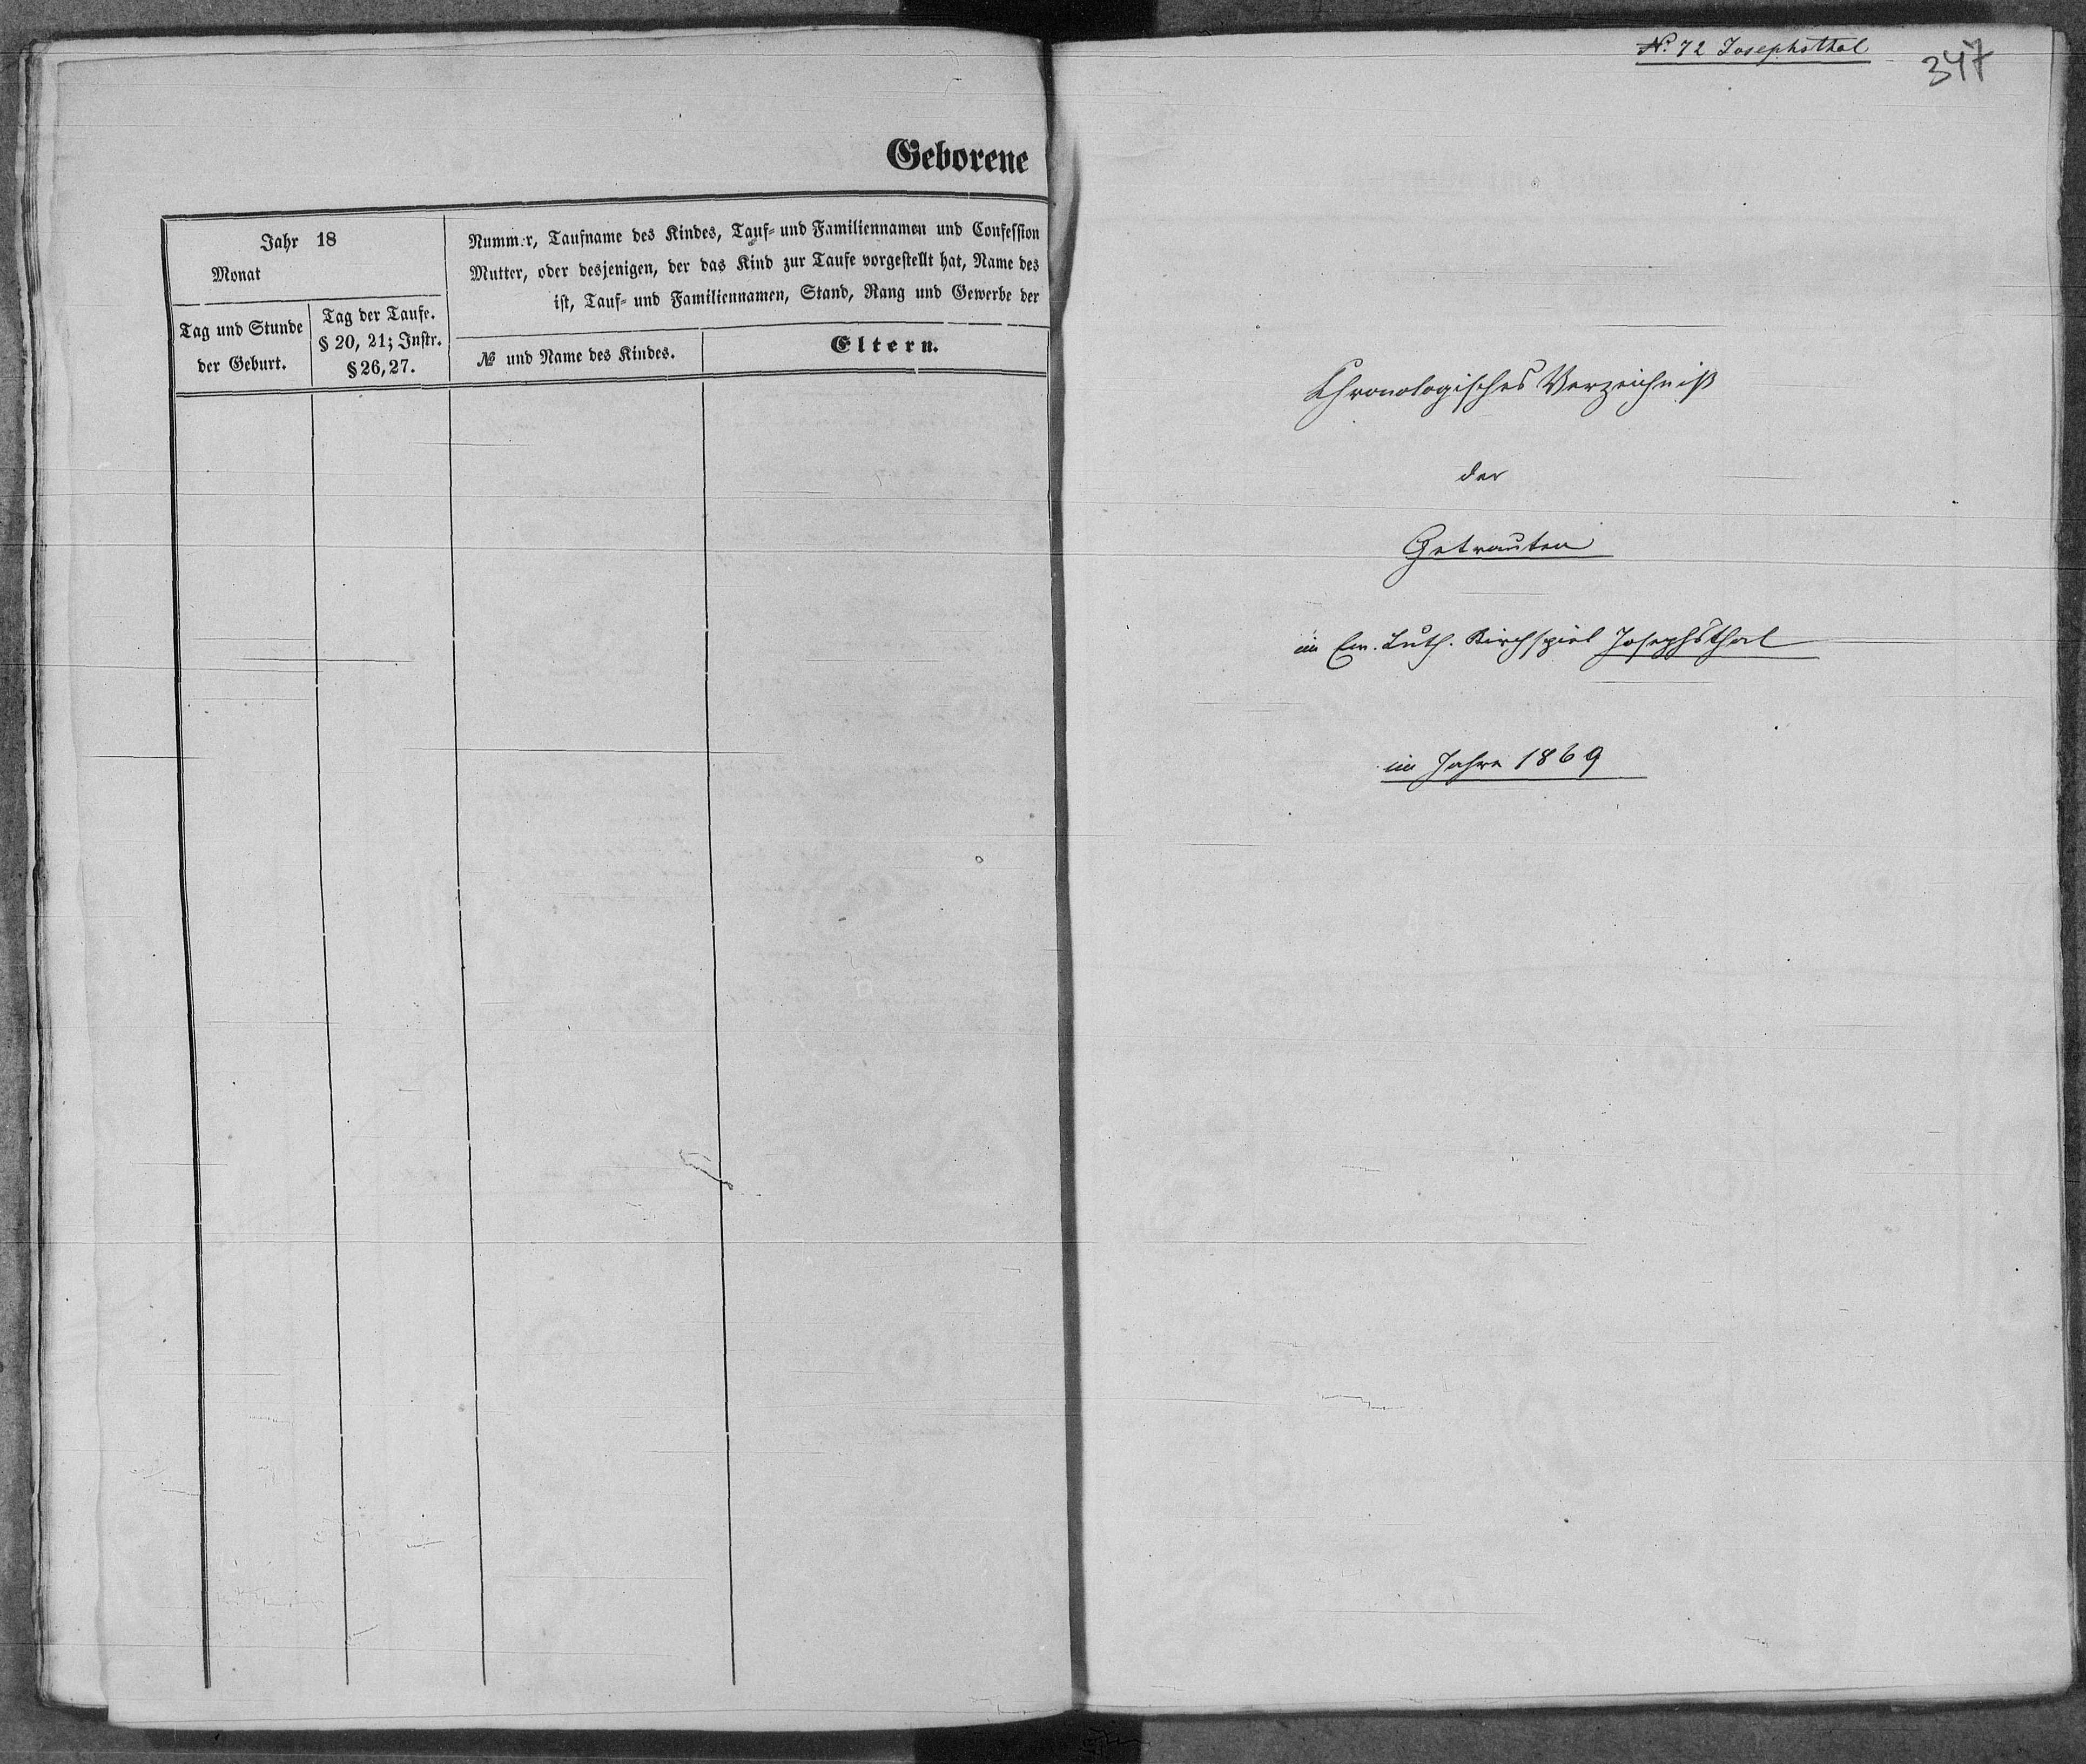 Geborene
Jahr 18
Monat
Nummer, Taufname des Kindes, Tauf- und Familiennamen und Confession
Mutter, oder desjenigen, der das Kind zur Taufe vorgestellt hat, Name des
ist, Tauf- und Familiennamen, Stand, Rang und Gewerbe der
Tag und Stunde
der Geburt.
Tag der Taufe.
§ 20, 21; Instr.
§ 26, 27.
№ und Name des Kindes.
Eltern.
№ 72 Josephsthal
347
Chronologisches Verzeichniß
der
Getrauten
im Ev. Luth. Kirchspiel Josephsthal
im Jahre 1869